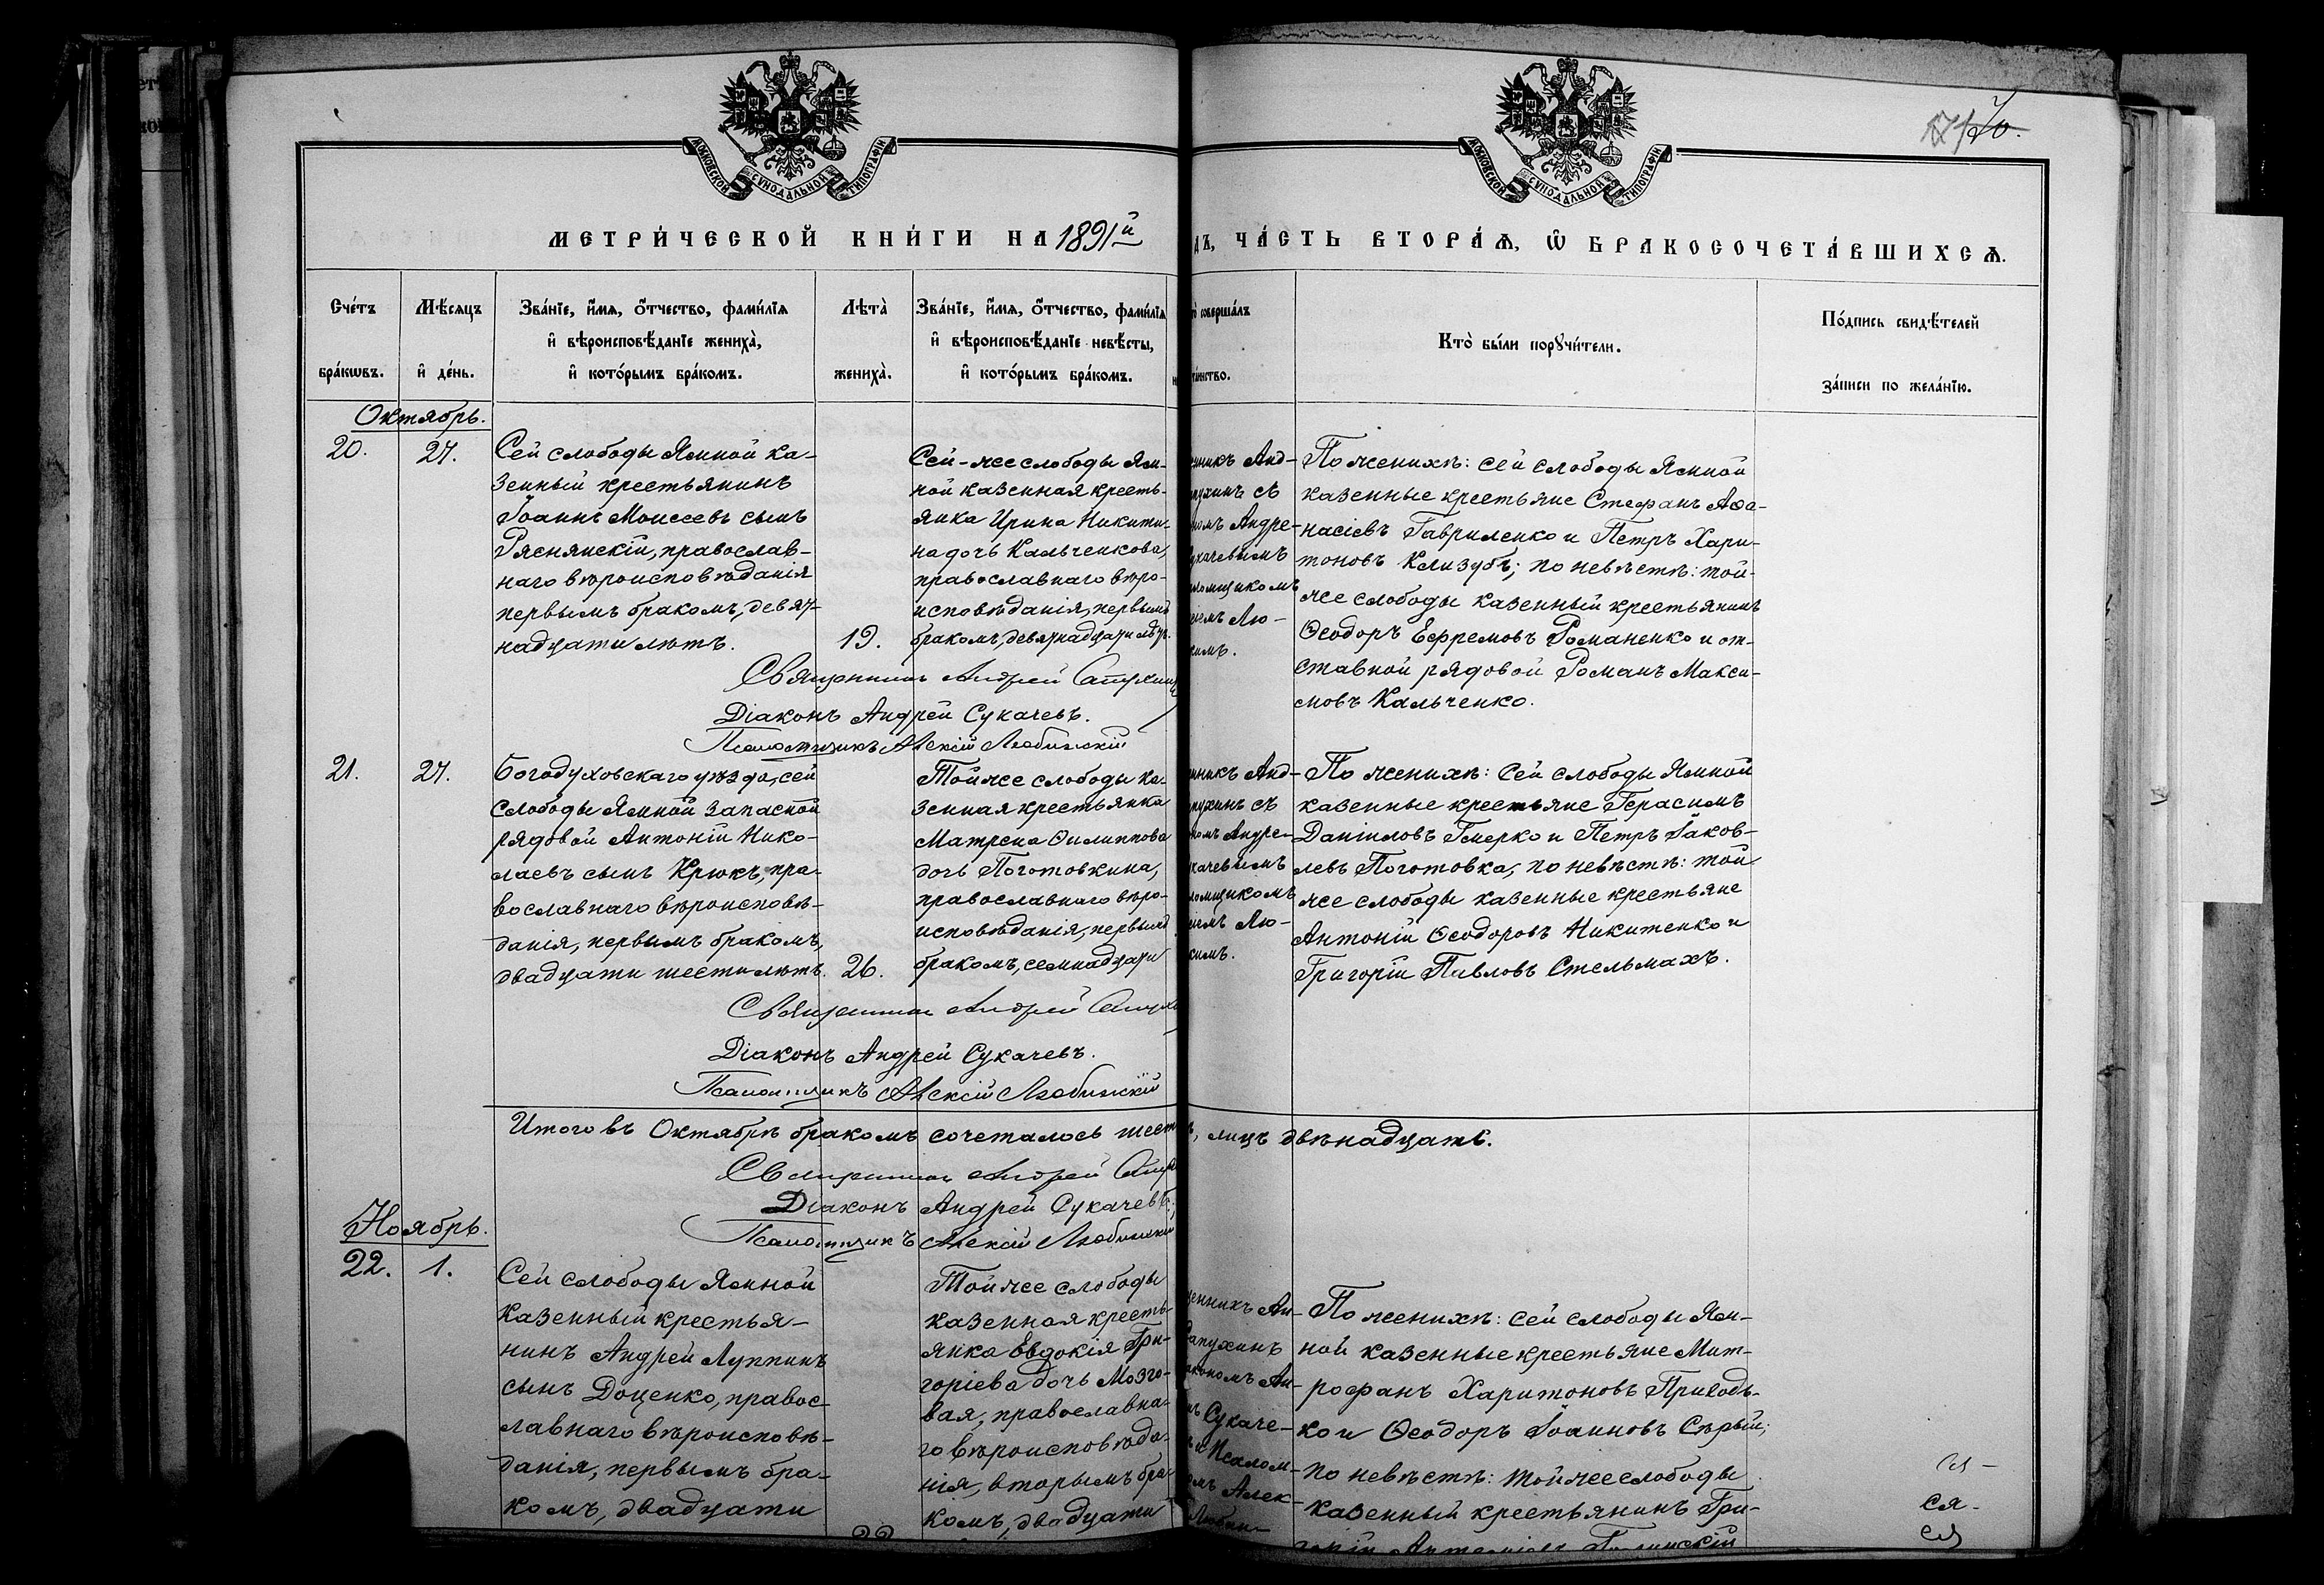 МОСКОВСКОЙ СѴНОДАЛЬНОЙ ТИПОГРАФІИ
МОСКОВСКОЙ СѴНОДАЛЬНОЙ ТИПОГРАФІИ
МЕТРИ́ЧЕСКОЙ КНИ́ГИ НА 1891й
ДЪ, ЧА́СТЬ ВТОРА́Ѧ, Ѡ҆ БРАКОСОЧЕТА́ВШИХСѦ.
Сче́тъ
бра́кѡвъ.
Мѣ́сяцъ
и҆ де́нь.
Зва́нїе, и҆́мѧ, ѻ҆́тчество, фами́лїѧ
и҆ вѣроисповѣ́данїе жениха̀,
и҆ кото́рымъ бра́комъ.
Лѣта̀
жениха̀.
Зва́нїе, и҆́мѧ, ѻ҆́тчество, фами́лїѧ
и҆ вѣроисповѣ́данїе невѣ́сты,
и҆ кото́рымъ бра́комъ.
соверша́лъ
та́инство.
Кто̀ бы́ли порꙋчи́тели.
По́дпись свидѣ́телей
за́писи по жела́нїю.
Октябрь.
20.
27.
Сей слободы Ямной ка-
зенный крестьянинъ
Іоаннъ Моисеевъ сынъ
Ряснянскій, православ-
наго вѣроисповѣданія
первымъ бракомъ, девят-
надцати лѣтъ.
19.
Сей-же слободы Ям-
ной казенная кресть-
янка Ирина Никити-
на дочь Кальченкова,
православнаго вѣро-
исповѣданія, первымъ
бракомъ, девятнадцати лѣтъ.
енникъ Анд-
пухинъ съ
номъ Андре-
укачевымъ
ломщикомъ
сіемъ Лю-
кимъ.
По женихѣ: сей слободы Ямной
казенные крестьяне Стефанъ Аѳа-
насіевъ Гавриленко и Петръ Хари-
тоновъ Клизубъ; по невѣстѣ: той-
же слободы казенный крестьянинъ
Ѳеодоръ Ефремовъ Романенко и от-
ставной рядовой Романъ Макси-
мовъ Кальченко.
Священникъ Андрей Сапухинъ
Діаконъ Андрей Сукачевъ.
Псаломщикъ Алексій Любинскій
21.
27.
Богодуховскаго уѣзда, сей
слободы Ямной запасной
рядовой Антоній Нико-
лаевъ сынъ Крюкъ, пра-
вославнаго вѣроисповѣ-
данія, первымъ бракомъ,
двадцати шести лѣтъ.
26.
Той же слободы ка-
зенная крестьянка
Матрена Филиппова
дочь Поготовкина,
православнаго вѣро-
исповѣданія, первымъ
бракомъ, семнадцати
нникъ Анд-
пухинъ съ
номъ Андре-
укачевымъ
ломщикомъ
сіемъ Лю-
кимъ.
По женихѣ: Сей слободы Ямной
казенные крестьяне Герасимъ
Даніиловъ Гмерко и Петръ Іаков-
левъ Поготовка, по невѣстѣ: той
же слободы казенные крестьяне
Антоній Ѳеодоровъ Никитенко и
Григорій Павловъ Стельмахъ.
Священникъ Андрей Сапух
Діаконъ Андрей Сукачевъ.
Псаломщикъ Алексій Любинскій
Итого въ Октябрѣ бракомъ сочеталось шесть, лицъ двѣнадцать.
Священникъ Андрей Сапух
Діаконъ Андрей Сукачевъ.
Псаломщикъ Алексій Любинскій
Ноябрь.
22.
1.
Сей слободы Ямной
казенный крестья-
нинъ Андрей Луппинъ
сынъ Доценко, правос-
лавнаго вѣроисповѣ-
данія, первымъ бра-
комъ, двадцати
22
Той же слободы
казенная кресть-
янка Евдокія Гри-
горіева дочь Мозго-
вая, православна-
го вѣроисповѣда-
нія, вторымъ бра-
комъ, двадцати
щенникъ Ан-
Сапухинъ
акономъ Ан-
Сукаче-
и Псалом-
омъ Алек-
Любин-
По женихѣ: сей слободы Ям-
ной казенные крестьяне Мит-
рофанъ Харитоновъ Приходь-
ко и Ѳеодоръ Іоанновъ Сѣрый;
по невѣстѣ: той же слободы
казенный крестьянинъ Гри-
горій
ся-
ся-
ся